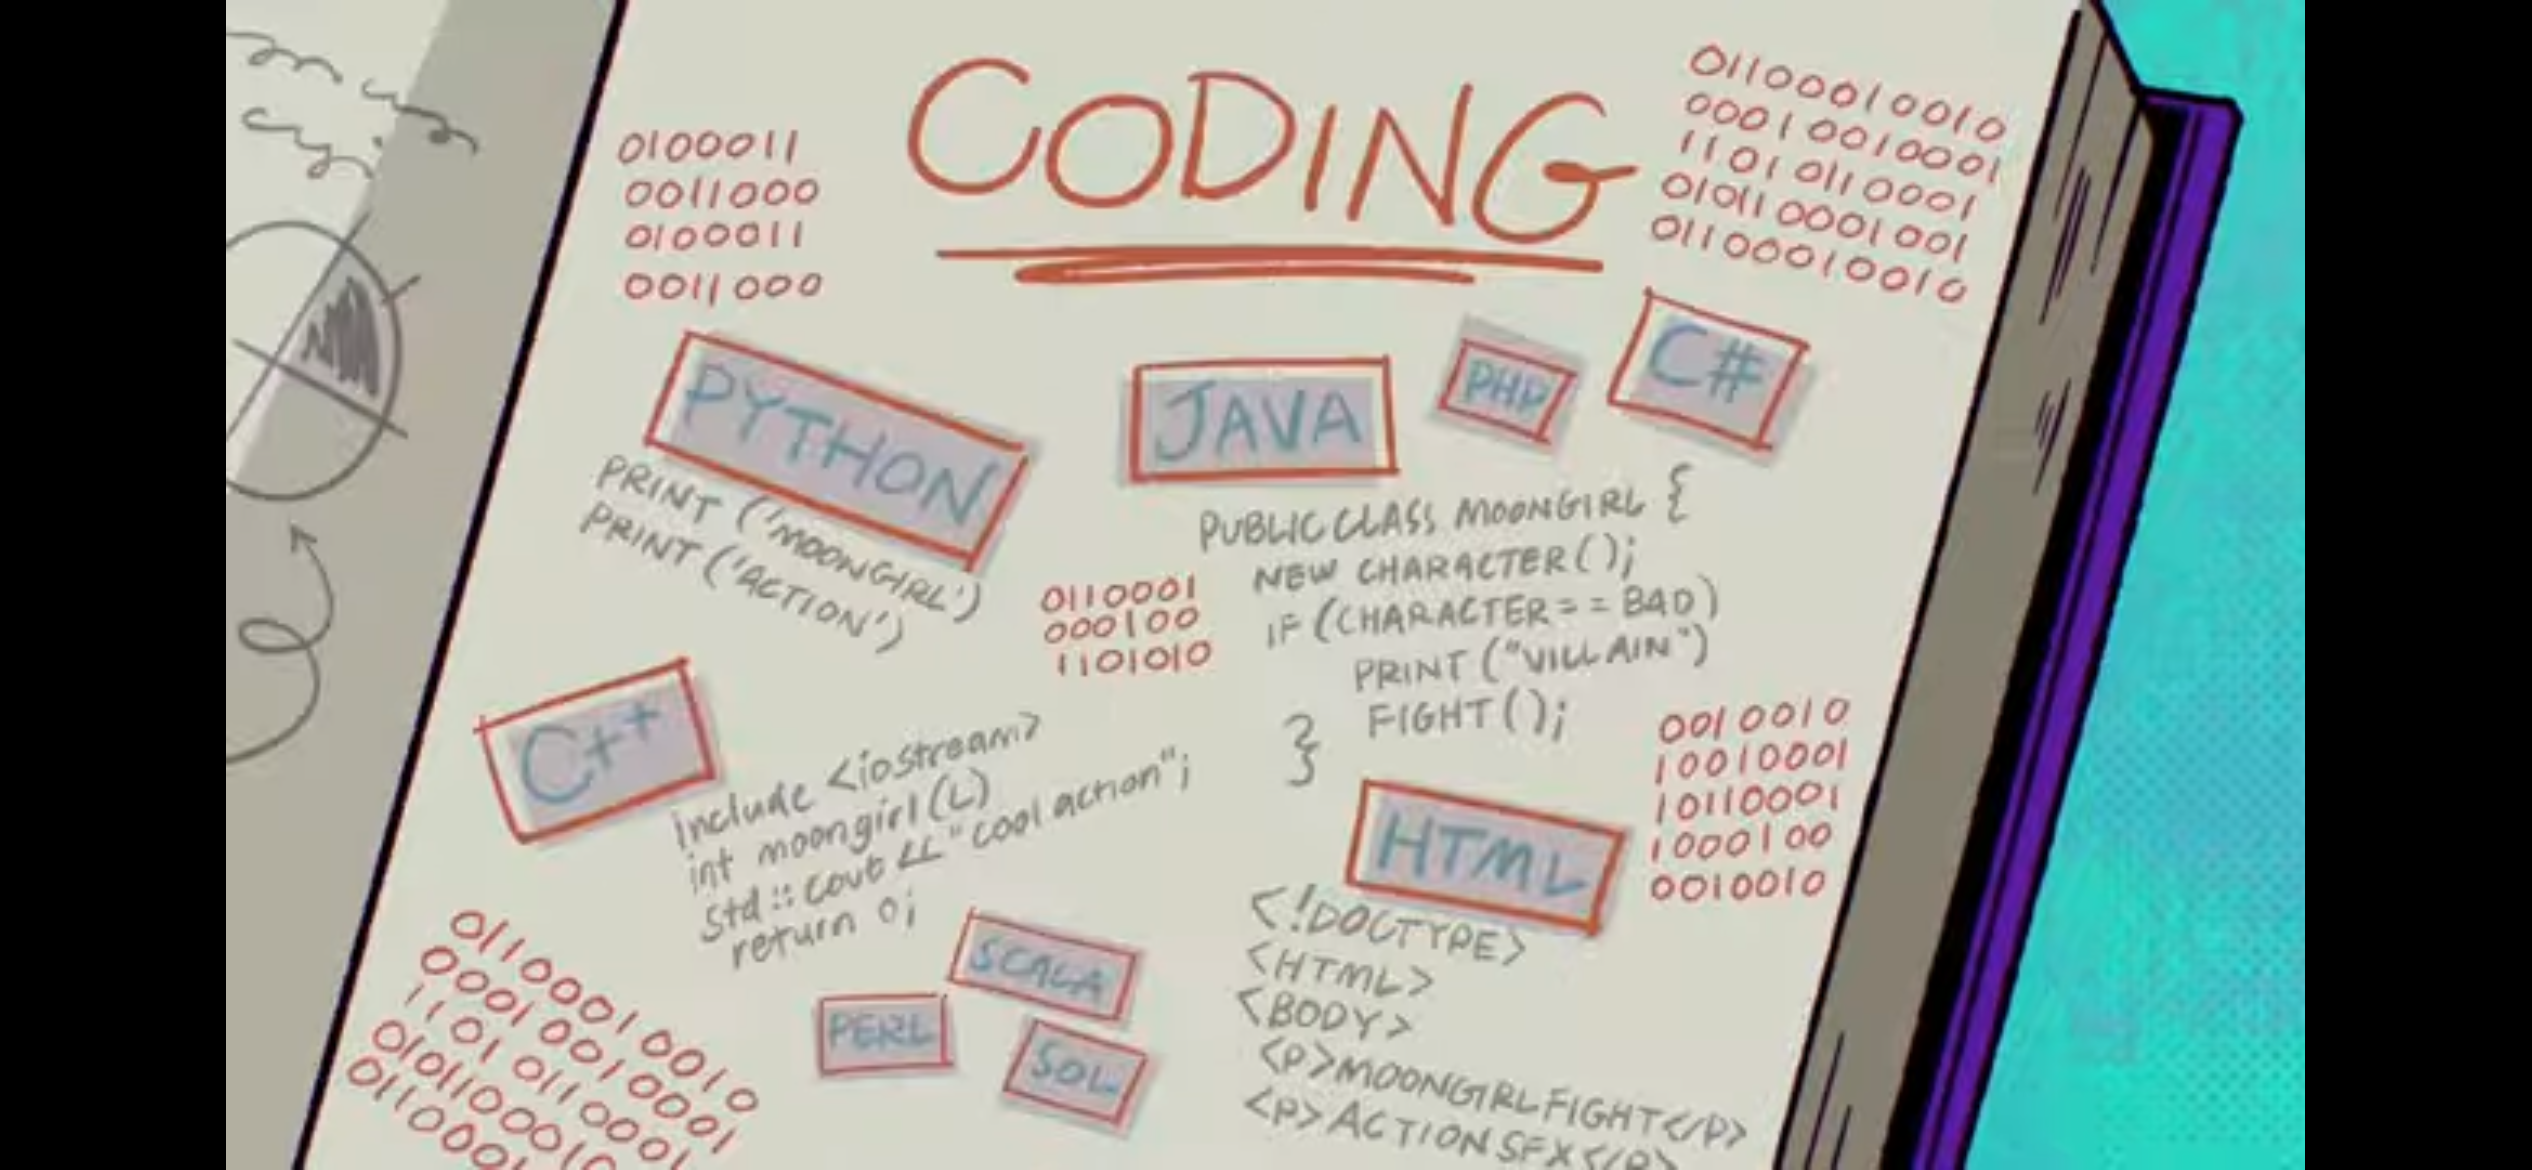 CODING
0100011
0011000
0100011
0011000
01100010010
00010010001
11010110001
010110001001
01100010010
PYTHON
PRINT ('MOONGIRL')
PRINT ('ACTION')
JAVA
PHP
C#
PUBLIC CLASS MOONGIRL {
NEW CHARACTER();
IF (CHARACTER == BAD)
PRINT ("VILLAIN")
FIGHT();
}
0110001
000100
1101010
C++
include <iostream>
int moongirl(L)
std::cout << "cool action";
return 0;
0010010
10010001
10110001
1000100
0010010
HTML
<!DOCTYPE>
<HTML>
<BODY>
<P>MOONGIRLFIGHT</P>
<P>ACTIONSFX</P>
SCALA
PERL
SQL
01100010010
00010010001
11010110001